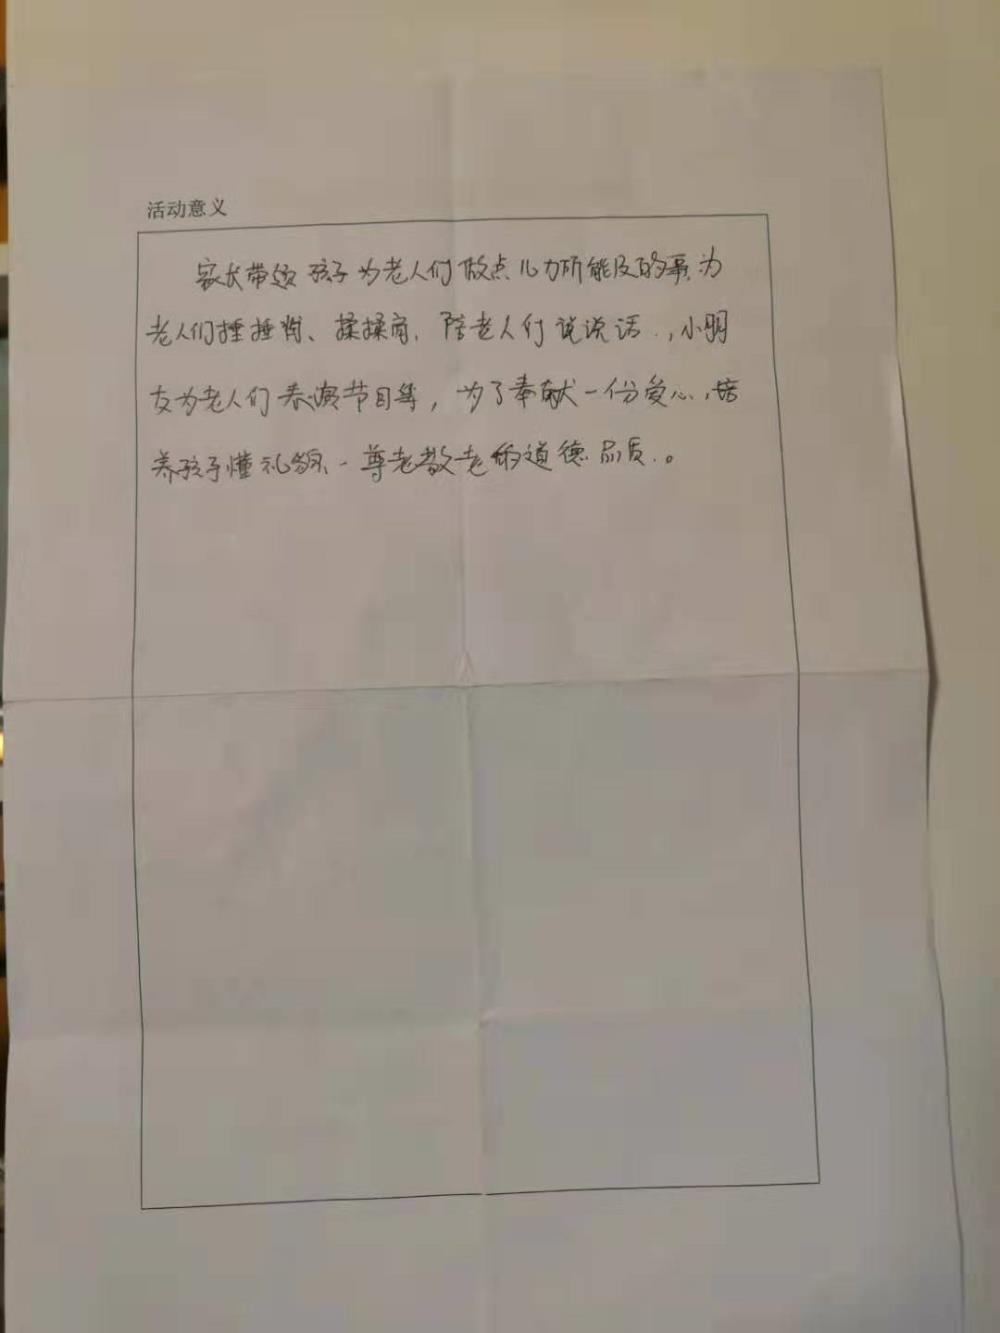 活动意义
家长带领孩子为老人们做点儿力所能及的事,为
老人们捶捶背、揉揉肩,陪老人们说说话.,小朋
友为老人们表演节目等,为了奉献一份爱心,培
养孩子懂礼貌、尊老敬老的道德品质.。